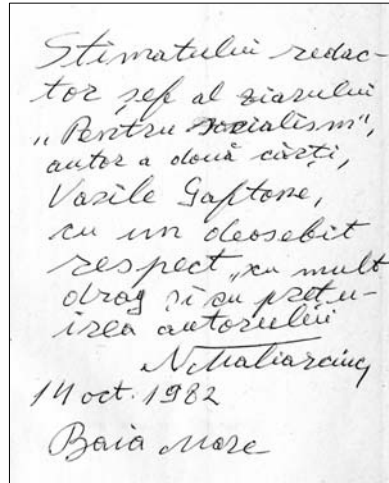 Stimatului redac-
tor șef al ziarului
„Pentru socialism",
autor a două cărți,
Vasile Gaftone,
cu un deosebit
respect, cu mult
drag și cu prețu-
irea autorului
14 oct. 1982
Baia Mare